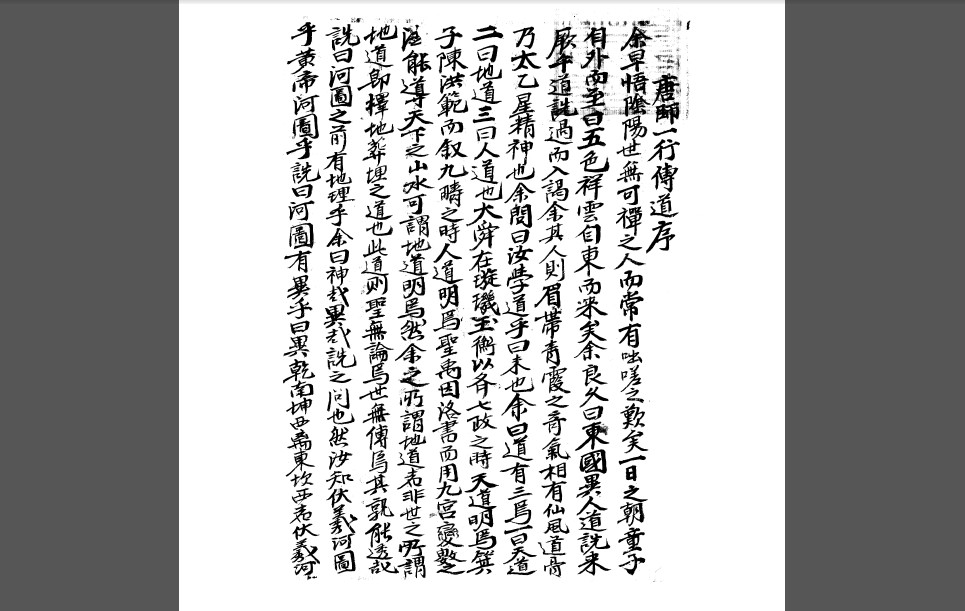 唐師一行傳道序
余早悟陰陽世無可禪之人而常有咄嗟之歎矣一日之朝童子
自外而至曰五色祥雲自東而來矣余良久曰東國異人道詵來
厥午道詵過而入謁余其人則眉帶青霞之奇氣相有仙風道骨
乃太乙星精神也余問曰汝學道乎曰未也余曰道有三焉一曰天道
二曰地道三曰人道也大舜在璇璣玉衡以齊七政之時天道明焉箕
子陳洪範而叙九疇之時人道明焉聖禹因洛書而用九宮變數之
法能導天下之山水可謂地道明焉然余之所謂地道者非世之所謂
地道卽擇地葬埋之道也此道則聖無論焉世無傳焉其孰能透說
詵曰河圖之前有地理乎余曰神哉異哉詵之問也然汝知伏羲河圖
乎黃帝河圖乎詵曰河圖有異乎曰異乾南坤西離東坎西者伏羲河